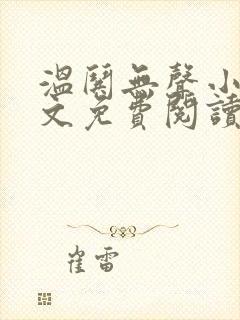 溫闍無聲小
文免費閱讀
崔雷